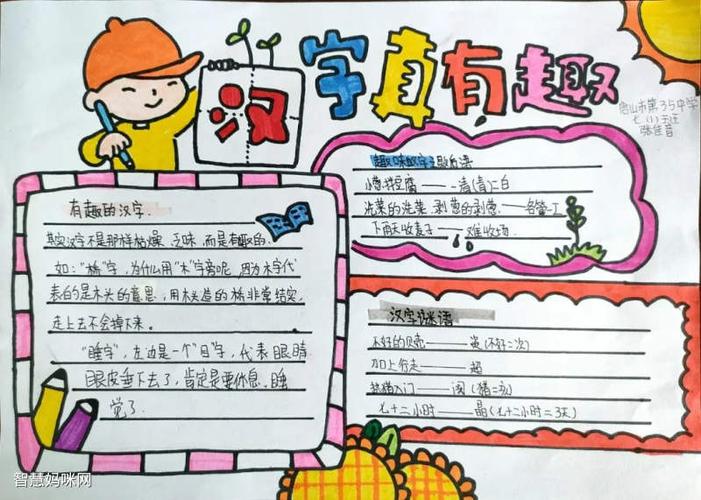 汉字真有趣
唐山市第35中学
七(1)
张佳音
有趣的汉字.
其实汉字不是那样枯燥、乏味,而是有趣的.
如:"桥"字,为什么用"木"字旁呢,因为木字代
表的是木头的意思,用木头造的桥非常结实,
走上去不会掉下来。
"睡字",左边是一个"目"字,代表眼睛
眼皮垂下去了,肯定是要休息、睡
觉了.
趣味汉字之歇后语
小葱拌豆腐——一清(青)二白
洗菜的洗菜,剥葱的剥葱——各管一工
下雨天收麦子——难收场
汉字谜语
不好的贝壳——
走——超
入门——阂(猪=亥)
七十二小时——晶(七十二小时=3天)
智慧妈咪网